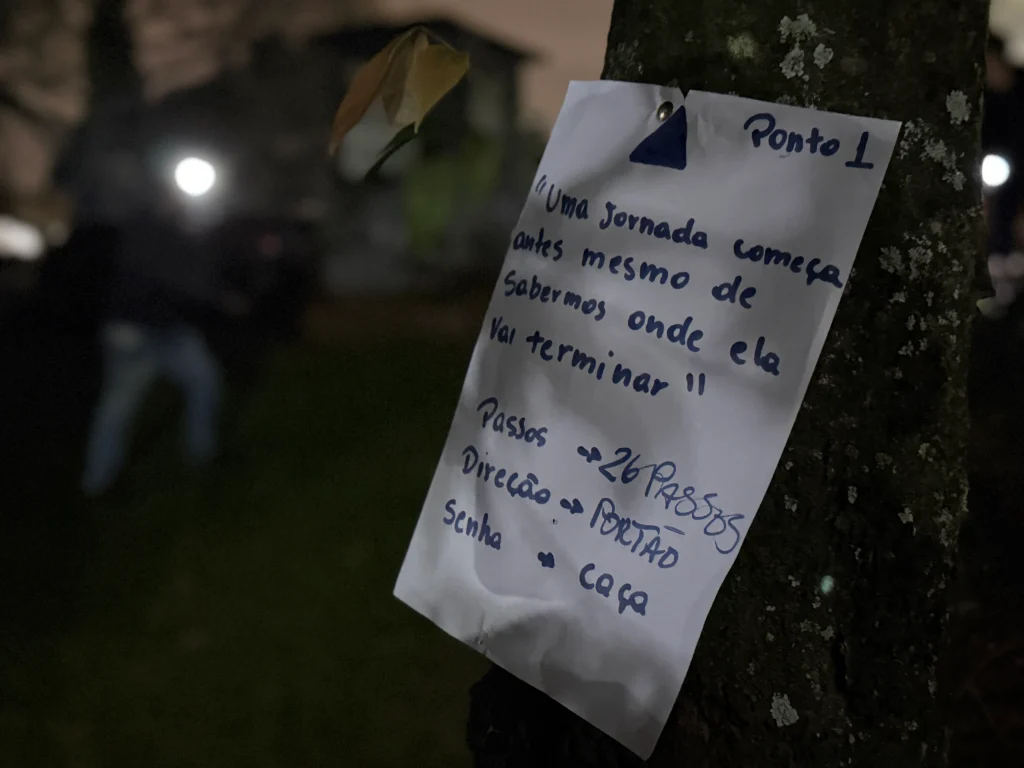 Ponto 1
"Uma jornada começa
antes mesmo de
sabermos onde ela
vai terminar"
Passos → 26 PASSOS
Direção → PORTÃO
Senha → caça